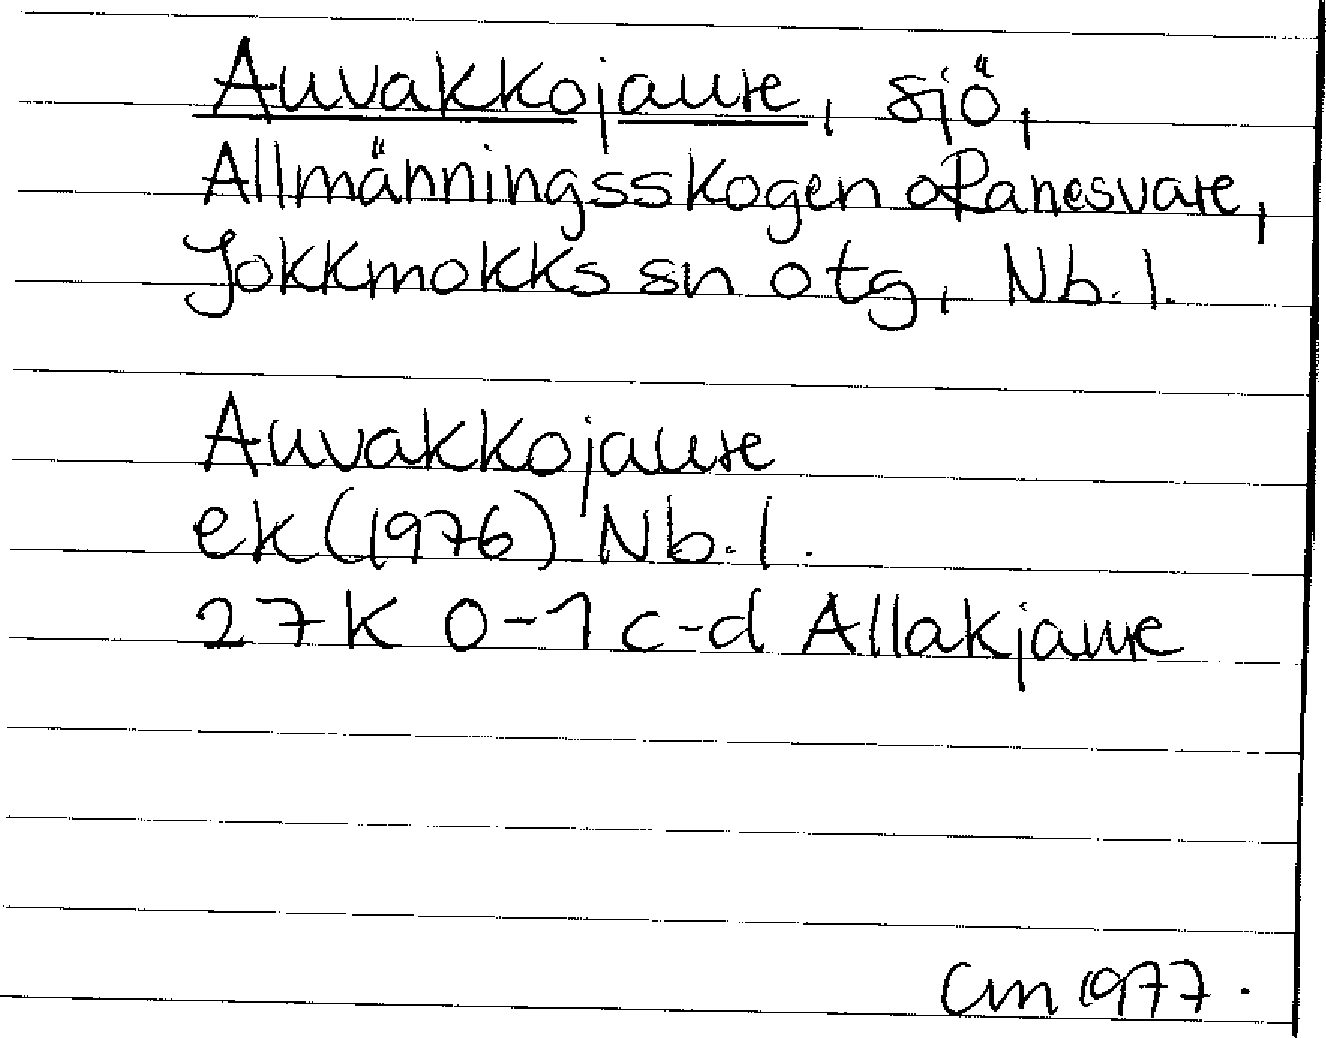 Auvakkojaure, sjö,
Allmänningsskogen o Ranesvare,
Jokkmokks sn o tg, Nb. l.
Auvakkojaure
ek (1976) Nb. l.
27K 0-1 c-d Allakjaure
Cm 1977.